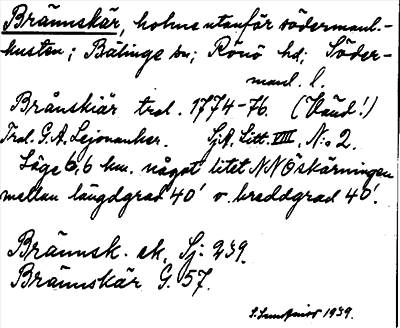 Brännskär, holme utanför södermanl.-
kusten; Bälinge sn; Rönö hd; Söder-
manl. l.
Brånskiär trol. 1774-76. (Känd!)
Trol. G.A. Lejonanker. SjA. Litt. VIII, N:o 2.
Läge 6,6 km. något litet NNÖ skärningen
mellan längdgrad 40' o. breddgrad 40'.
Brännsk. ek. Sj: 239.
Brännskär G. 57.
1939.